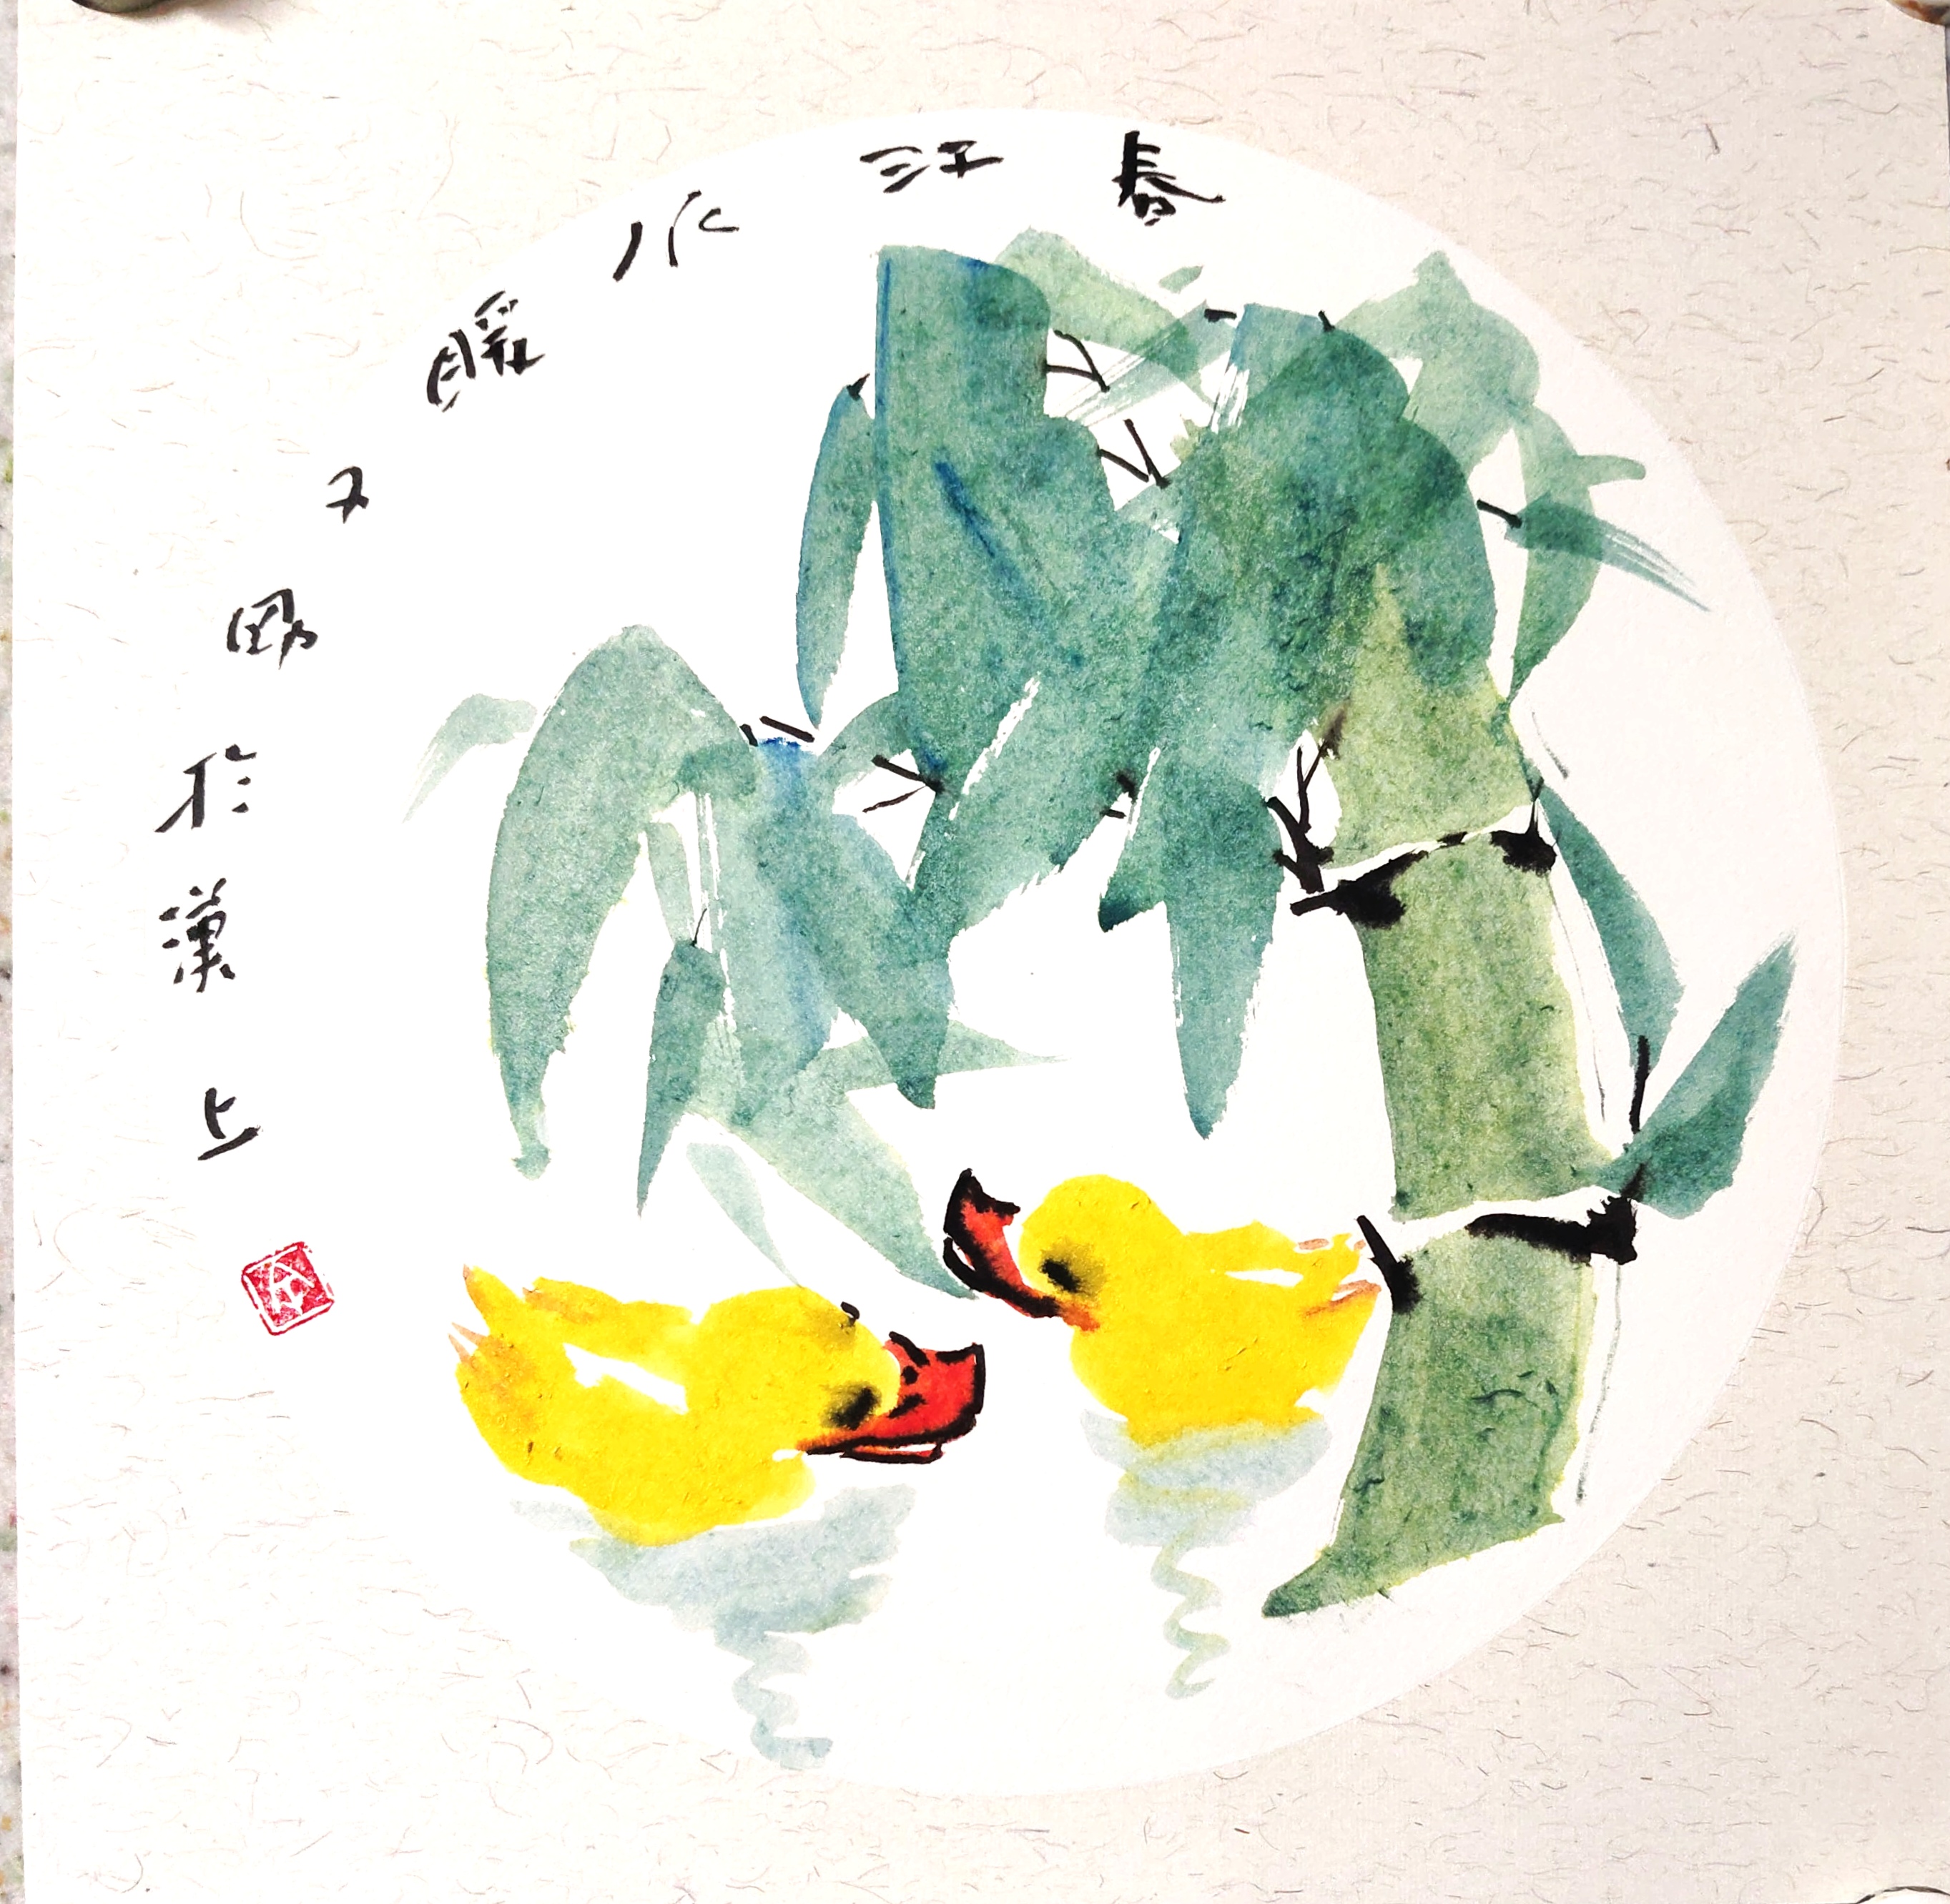 春江水暖又男於漢上